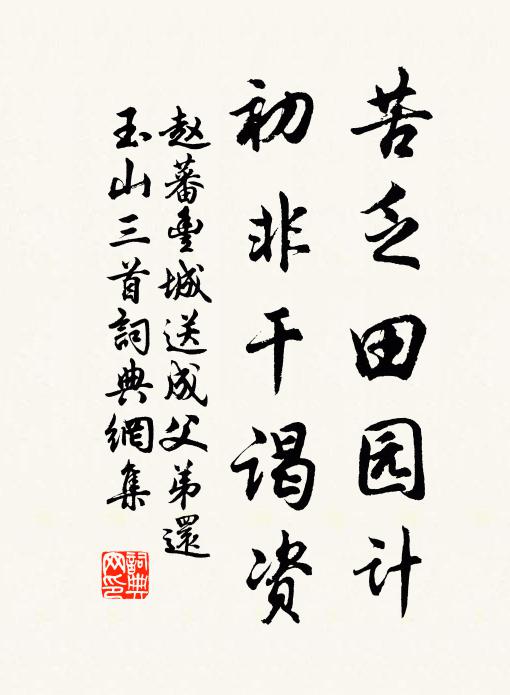 苦乏田园计
初非干谒资
赵蕃豐城送成父弟還
玉山三首詞典網集
詞典網印